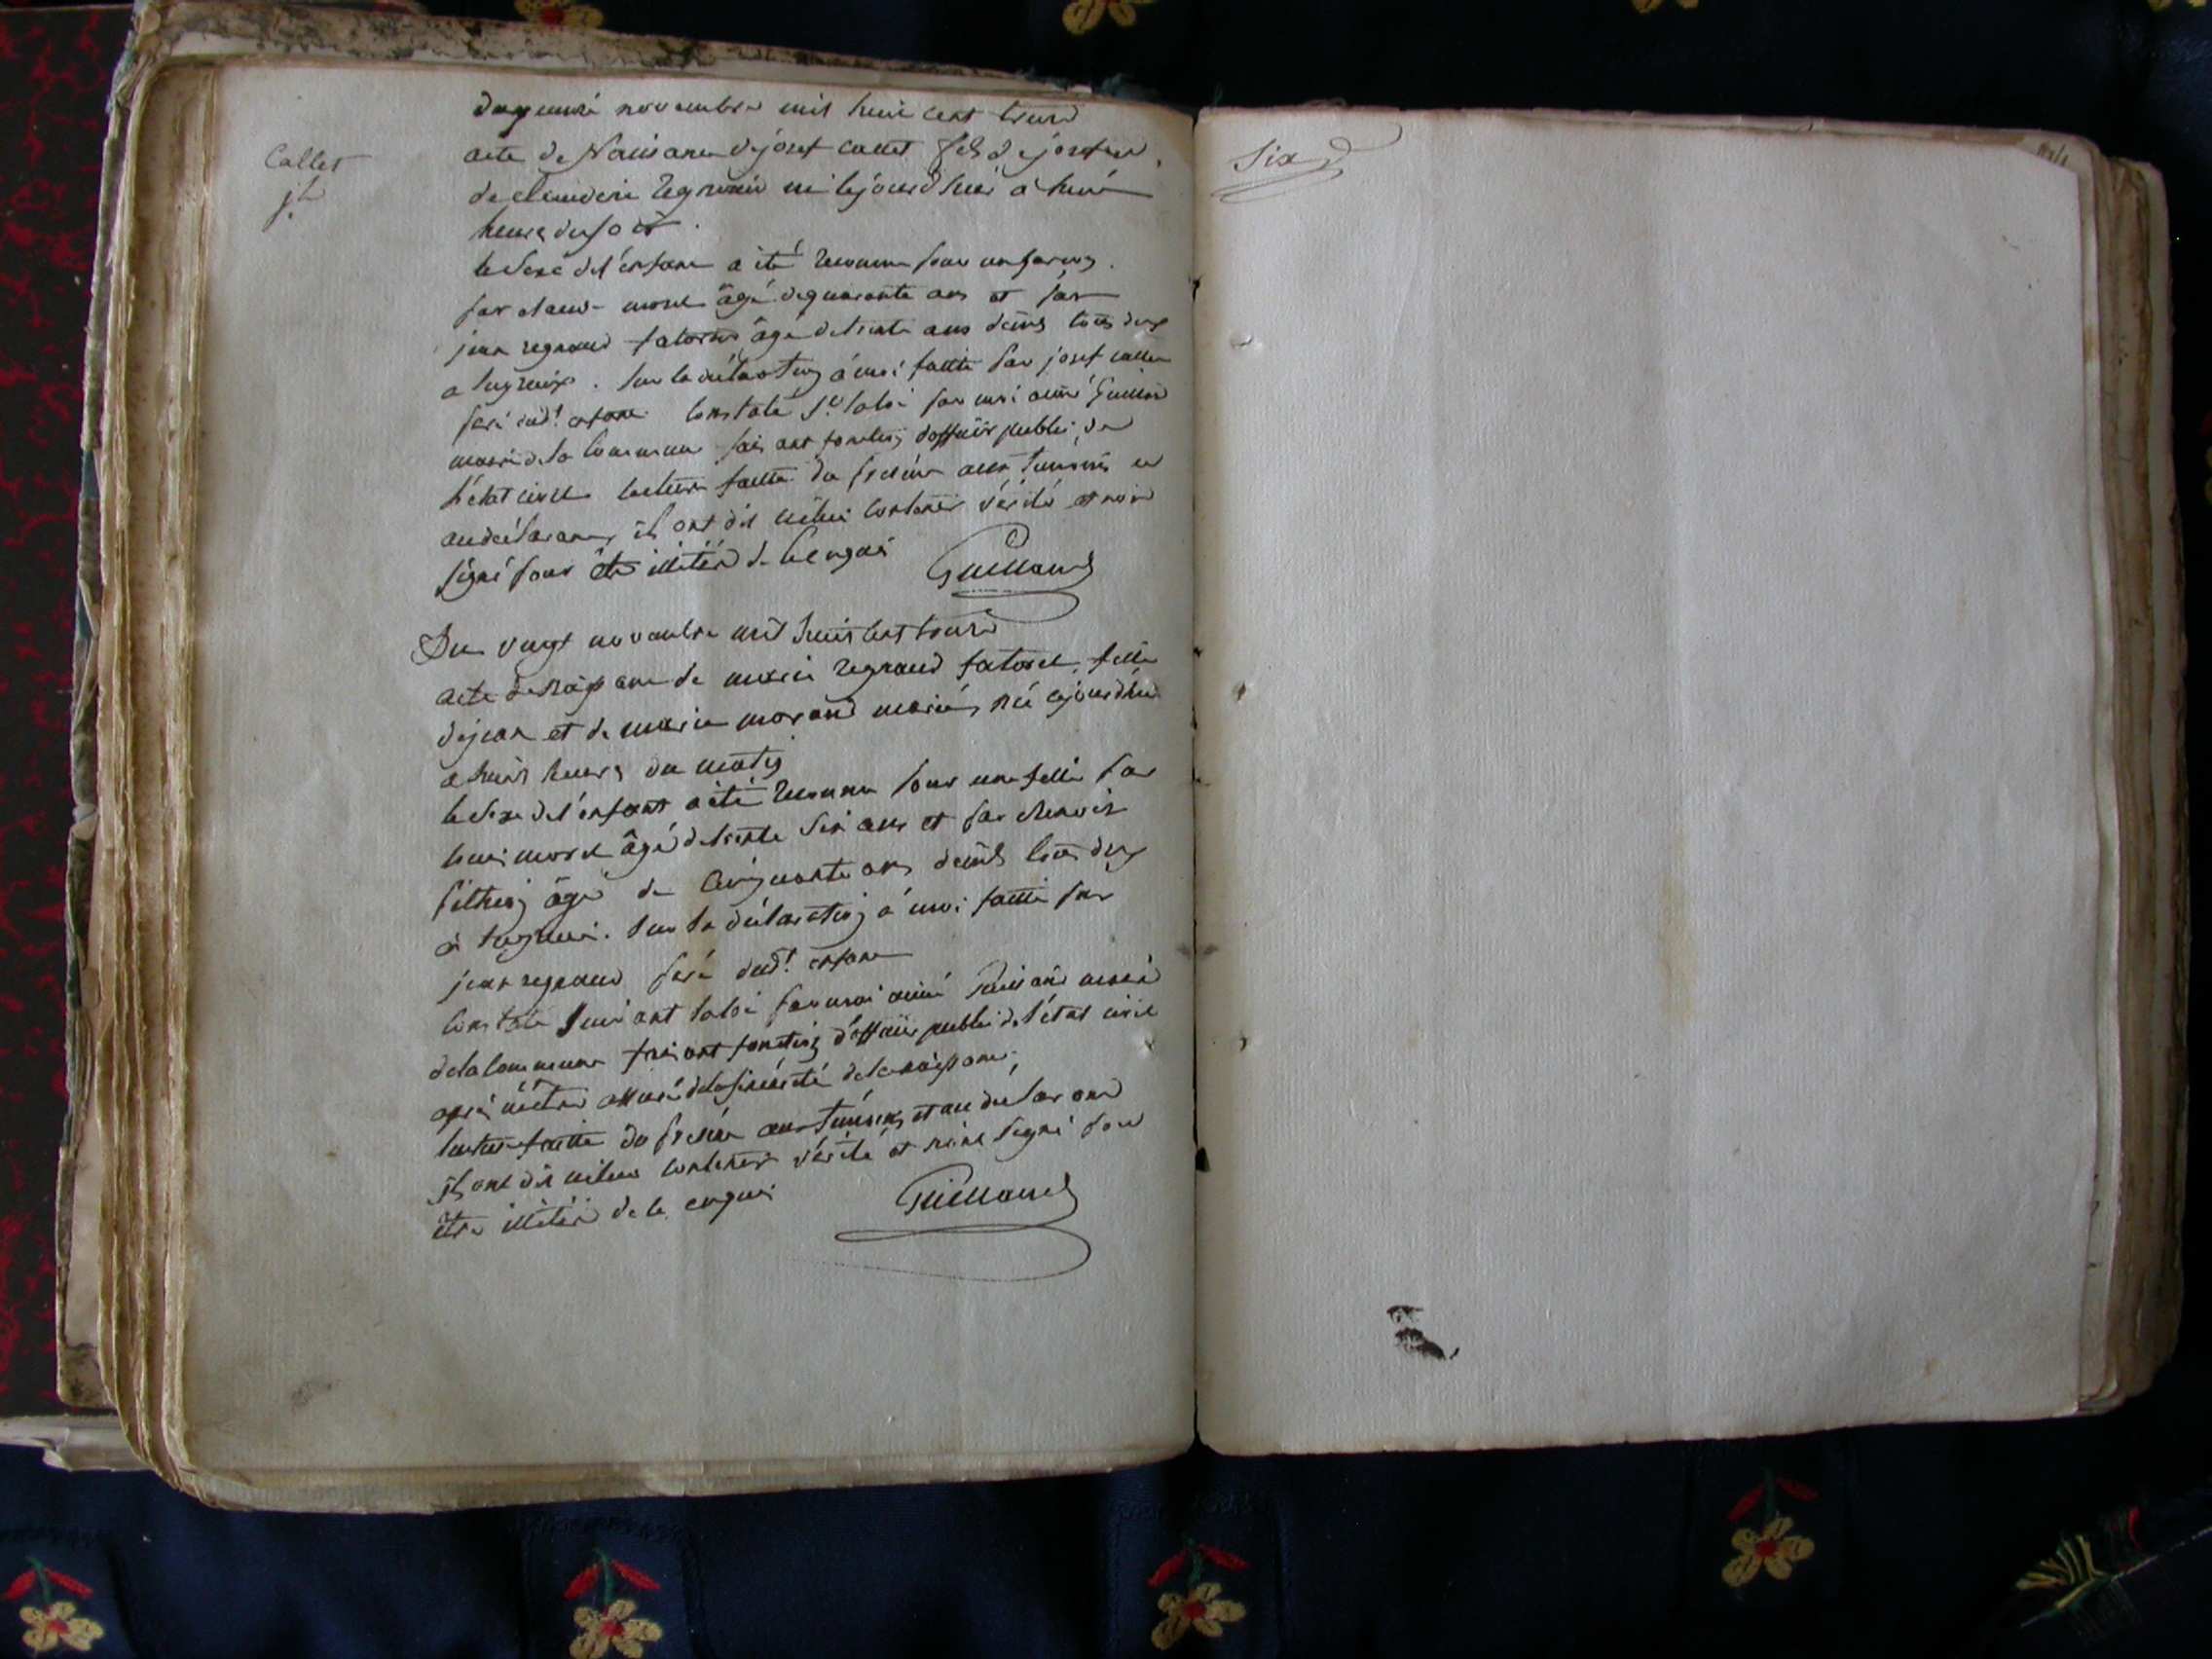 Callet
jh
du quinze novembre mil huit cent treize
acte de Naissance de josef callet fils de josef et
de claudine Regnaud né cejourd'hui à huit
heures du soir.
le sexe de l'enfant a été reconnu pour un garcon
par morel âgé de quarante ans et par
jean regnaud âgé de trente ans tous deux
a . sur la déclaration à moi faitte par josef callet
père dud.t enfant constaté s.t la loi par moi aimé Guillaud
maire de la commune fais ant fonction d'officier public de
l'état civil lecture faitte du présent aux temoins et
au déclarant ils ont dit icelui contenir vérité et non
signé pour être illitéré de ce enquis
Guillaud
Du vingt novembre mil huit cent treize
acte de naissance de marie regnaud fille
de jean et de marie morand mariés née cejourdhui
a huit heures du matin
le sexe de l'enfant a été reconnu pour une fille par
louis morel âgé de trente six ans et par
âgé de cinquante ans tous deux
à . sur la déclaration à moi faitte par
jean regnaud père dud.t enfant
constaté suivant la loi par moi aimé Guillaud maire
de la commune faisant fonction d'officier public de l'état civil
après m'être assuré de la sincérité de la naissance,
lecture faitte du présent aux temoins et au déclarant
ils ont dit icelui contenir vérité et n'ont signé pour
être illitéré de ce enquis
Guillaud
Six